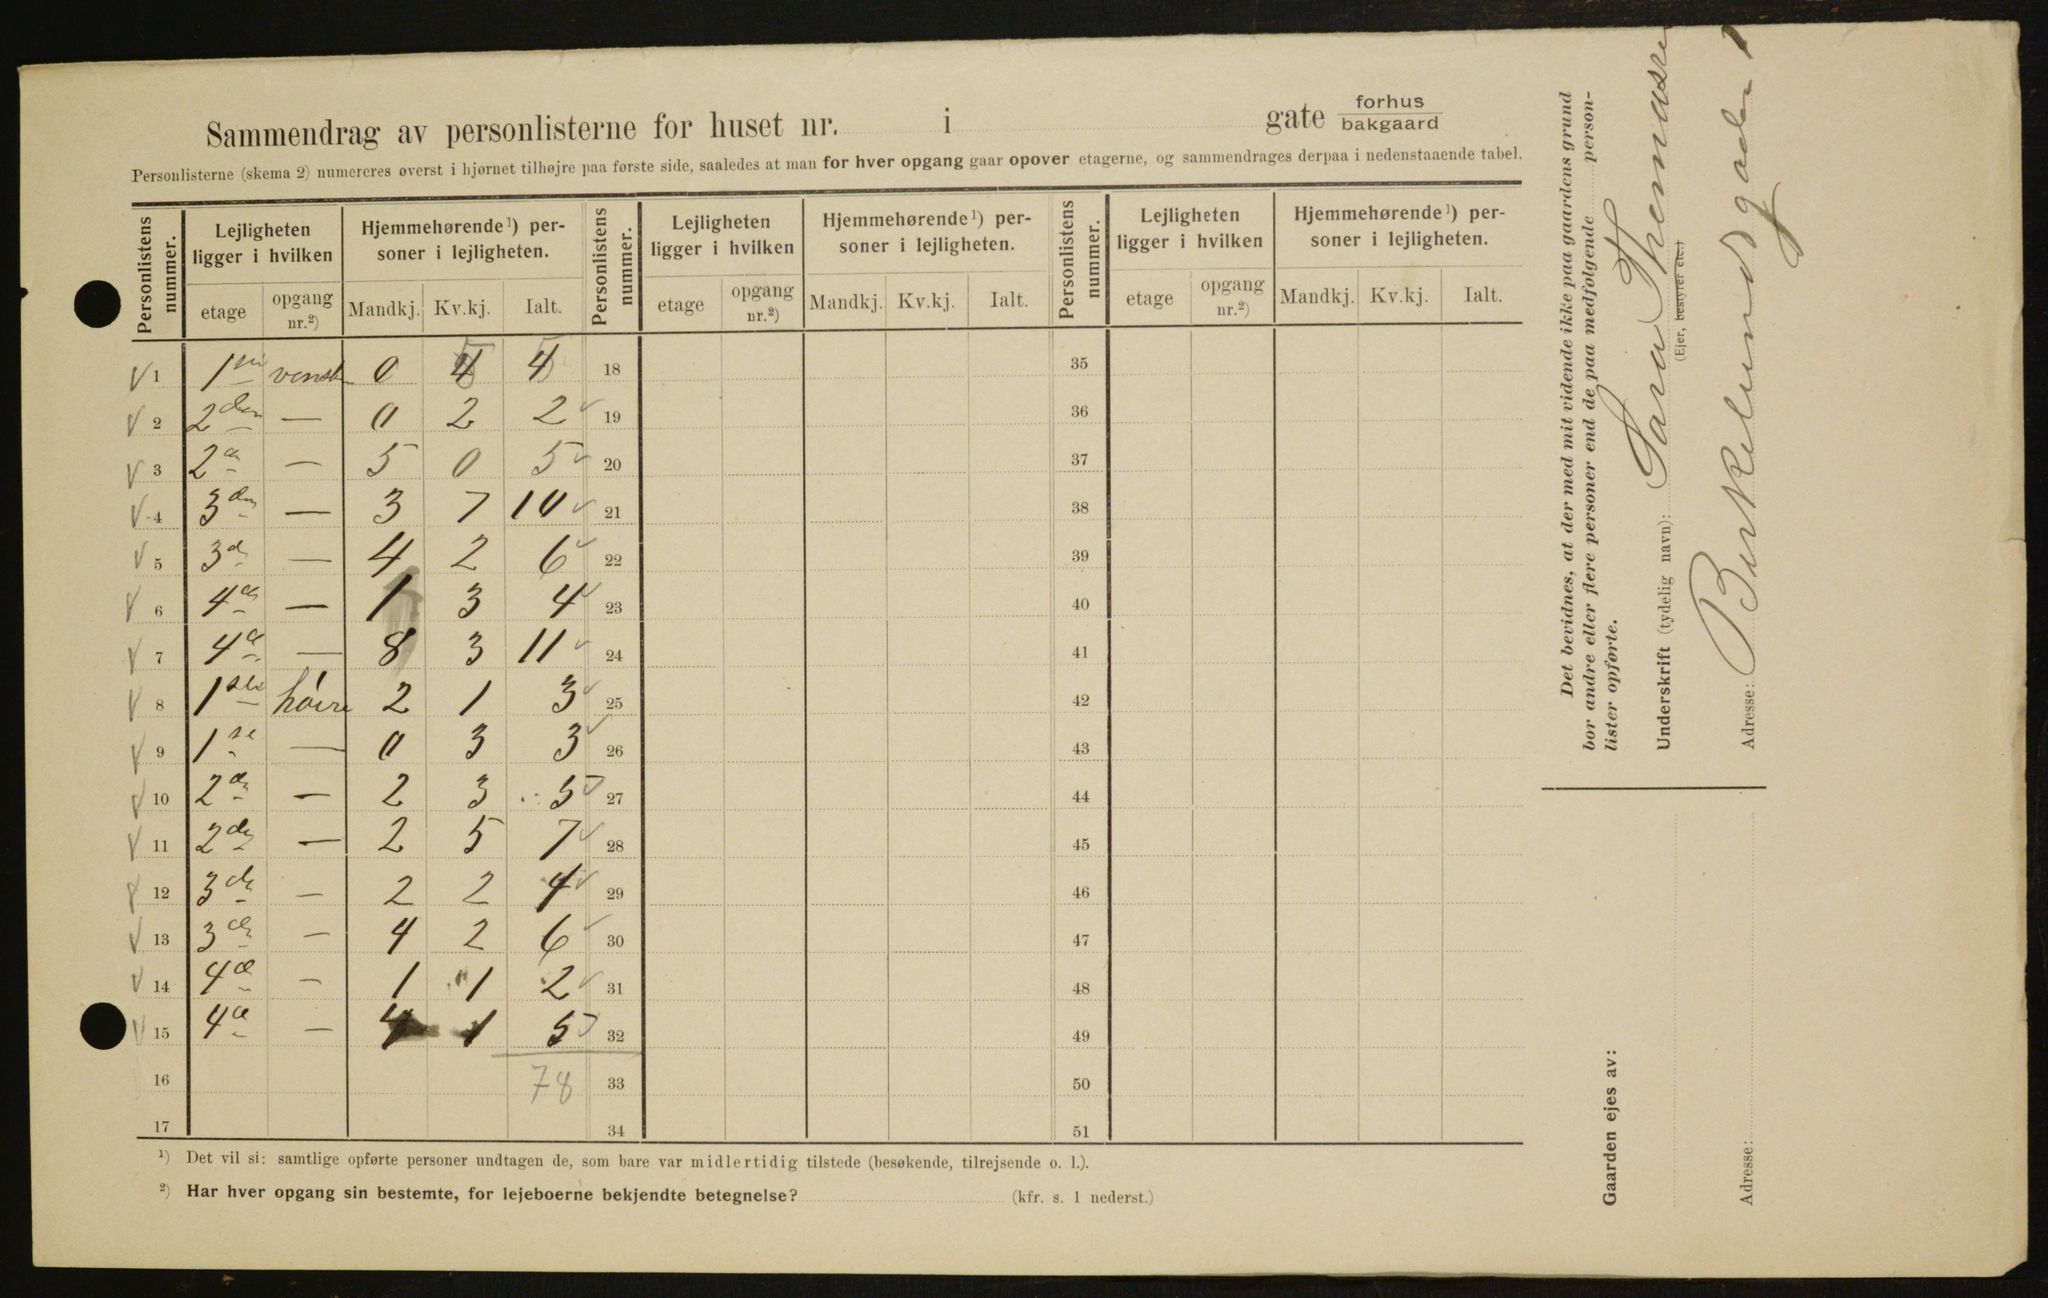 Sammendrag av personlisterne for huset nr. i gate forhus
bakgaard
Personlisterne (skema 2) numereres øverst i hjørnet tilhøjre paa første side, saaledes at man for hver opgang gaar opover etagerne, og sammendrages derpaa i nedenstaaende tabel.
Personlistens nummer. Lejligheten ligger i hvilken Hjemmehørende¹) personer i lejligheten. Personlistens nummer. Lejligheten ligger i hvilken Hjemmehørende¹) personer i lejligheten. Personlistens nummer. Lejligheten ligger i hvilken Hjemmehørende¹) personer i lejligheten.
etage opgang nr.²) Mandkj. Kv.kj. Ialt. etage opgang nr.²) Mandkj. Kv.kj. Ialt. etage opgang nr.²) Mandkj. Kv.kj. Ialt.
1 1ste 0 4 4 18 35
2 2den — 0 2 2 19 36
3 2d — 5 0 5 20 37
4 3den — 3 7 10 21 38
5 3d — 4 2 6 22 39
6 4d — 1 3 4 23 40
7 4d — 8 3 11 24 41
8 1ste høire 2 1 3 25 42
9 1ste — 0 3 3 26 43
10 2den — 2 3 5 27 44
11 2den — 2 5 7 28 45
12 3de — 2 2 4 29 46
13 3de — 4 2 6 30 47
14 4de — 1 1 2 31 48
15 4de — 4 1 5 32 49
16 78 33 50
17 34 51
¹) Det vil si: samtlige opførte personer undtagen de, som bare var midlertidig tilstede (besøkende, tilrejsende o. l.).
²) Har hver opgang sin bestemte, for lejeboerne bekjendte betegnelse? (kfr. s. 1 nederst.)
Det bevidnes, at der med mit vidende ikke paa gaardens grund
bor andre eller flere personer end de paa medfølgende personlister opførte.
Underskrift (tydelig navn):
(Ejer, bestyrer etc.)
Adresse: Birkelundsgaden 1
Gaarden ejes av:
Adresse: